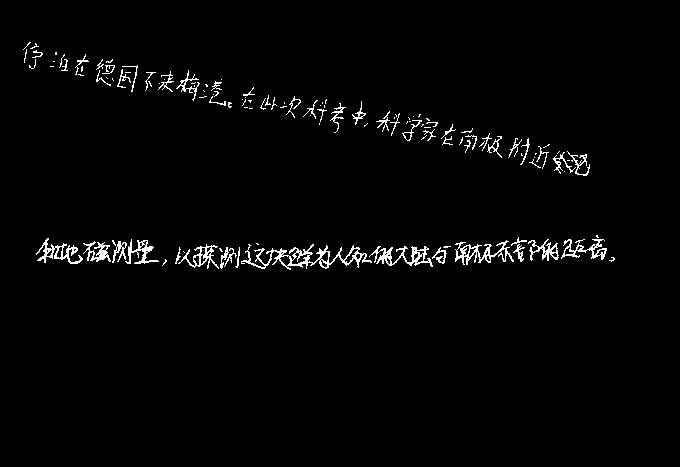 停泊在德国不来梅港。在此次科考中,科学家在南极附近
和地磁测量,以探测这块鲜为人知的大陆与南极东部的距离。